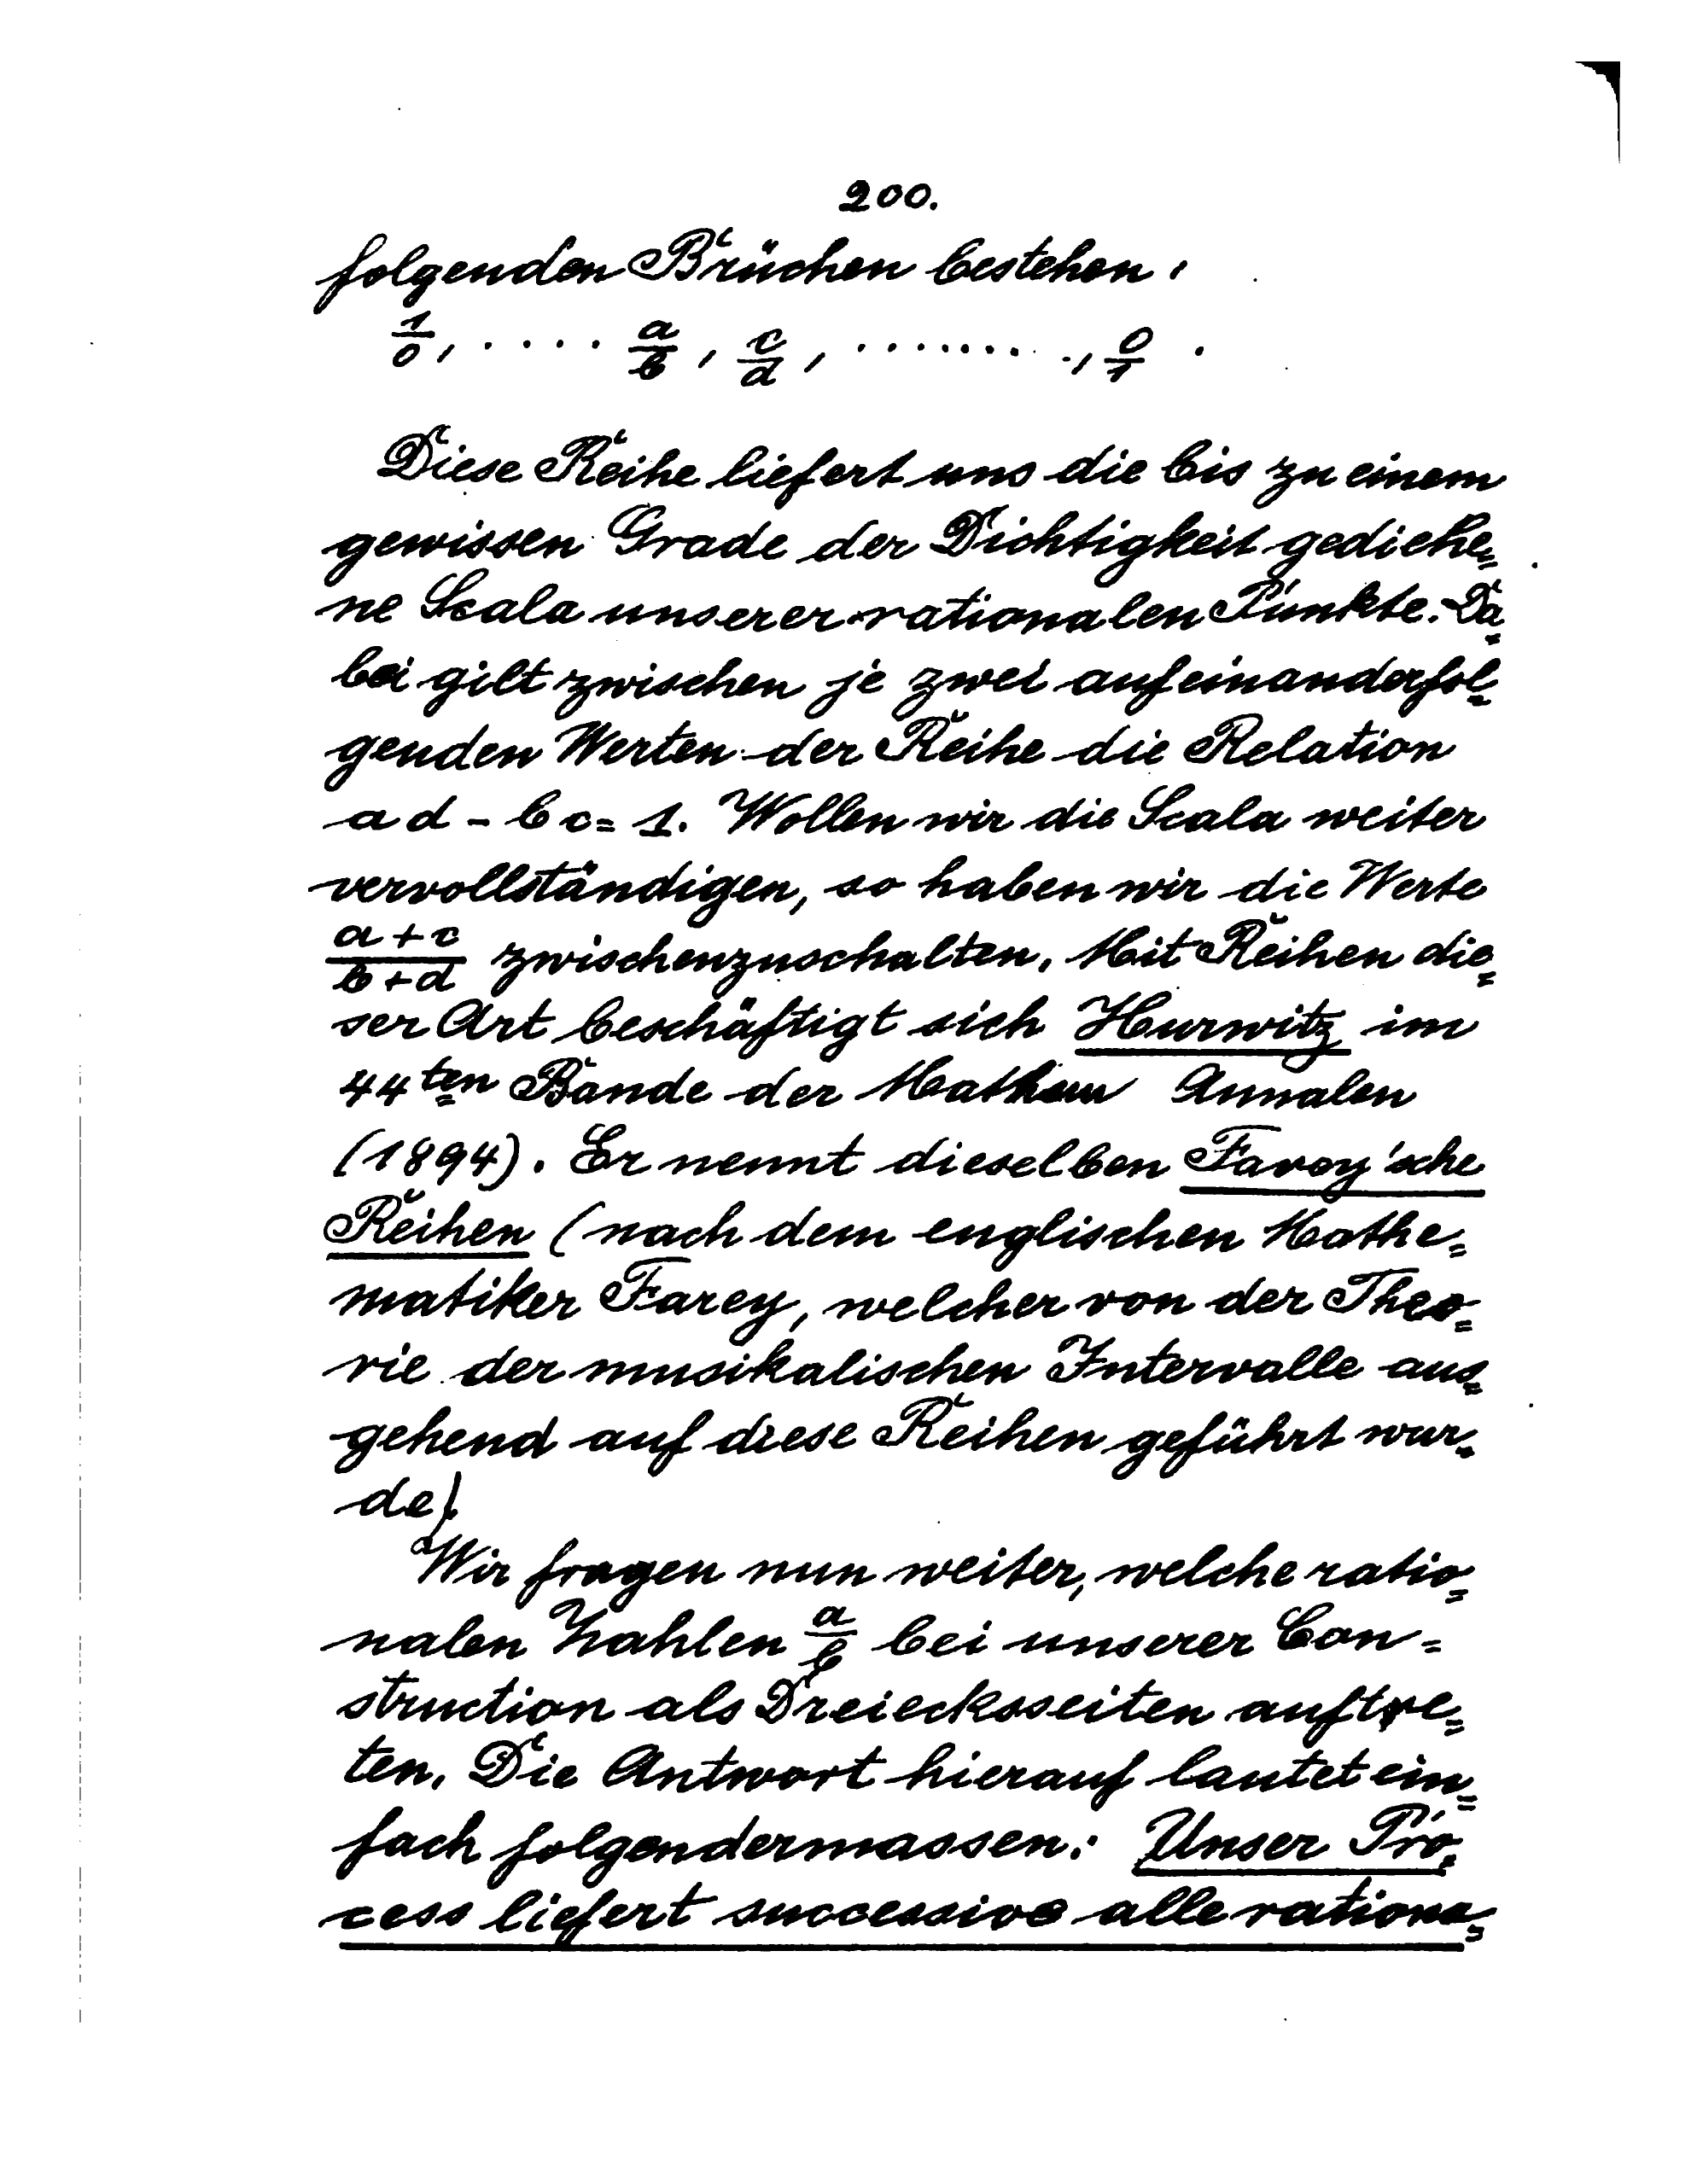 200.
folgenden Brüchen bestehen:
1/0, ..... a/b, c/d, ........., 0/1.
Diese Reihe liefert uns die bis zu einem
gewissen Grade der Dichtigkeit gediehe=
ne Scala unserer rationalen Punkte. Da=
bei gilt zwischen je zwei aufeinanderfol=
genden Werten der Reihe die Relation
ad - bc = 1. Wollen wir die Scala weiter
vervollständigen, so haben wir die Werte
(a+c)/(b+d) zwischenzuschalten. Mit Reihen die=
ser Art beschäftigt sich Hurwitz im
44ten Bande der Mathem Annalen
(1894). Er nennt dieselben Farey'sche
Reihen (nach dem englischen Mathe=
matiker Farey, welcher von der Theo=
rie der musikalischen Intervalle aus=
gehend auf diese Reihen geführt wur=
de).
Wir fragen nun weiter, welche ratio=
nalen Zahlen a/b bei unserer Con=
struction als Dreiecksseiten auftre=
ten. Die Antwort hierauf lautet ein=
fach folgendermassen: Unser Pro=
cess liefert successive alle rationa=